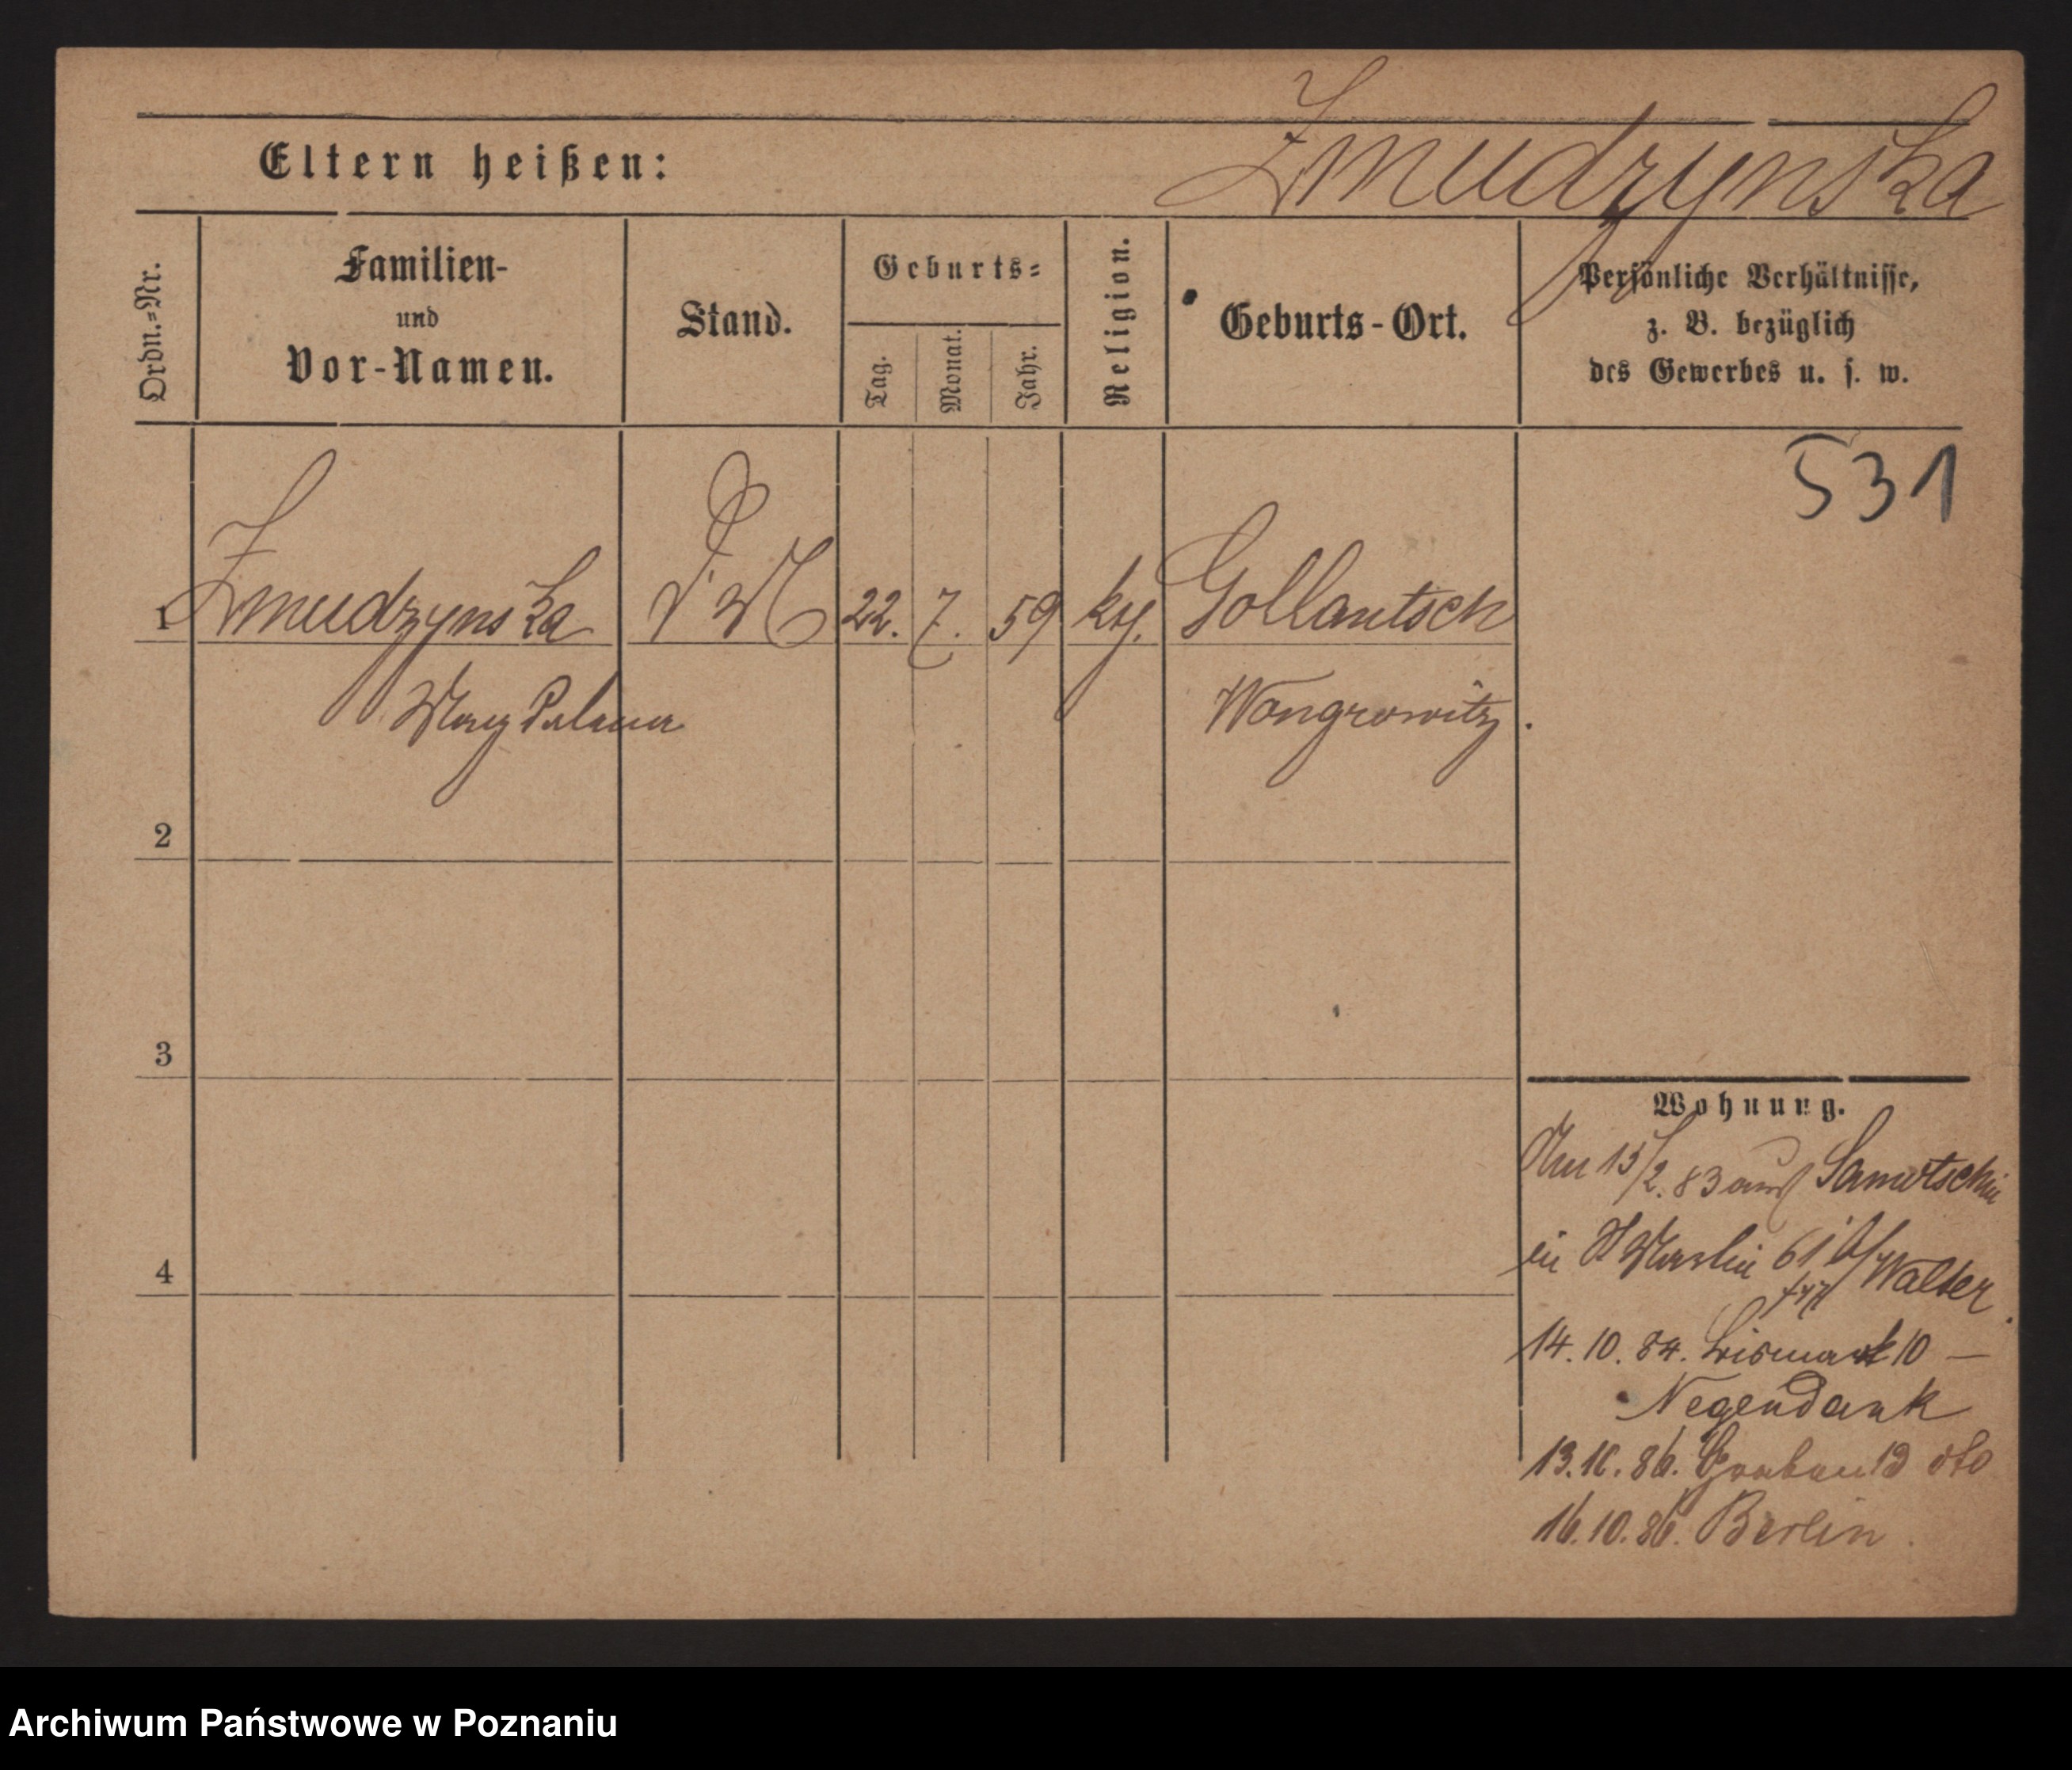 Zmudzynska
Eltern heißen:
Ordn.=Nr.
Familien-
und
Vor-Namen.
Stand.
Geburts=
Tag.
Monat.
Jahr.
Religion.
Geburts-Ort.
Persönliche Verhältnisse,
z. B. bezüglich
des Gewerbes u. s. w.
531
1 Zmudzynska 22. 7. 59 Gollantsch
Magdalena Wongrowitz.
2
3
4
Wohnung.
Am 15/2. 83 aus Samotschin
in Martin 61 b/ Walter.
14. 10. 84. Bismark 10 —
Negendank
13. 10. 86. Graben 13 dto
16. 10. 86. Berlin.
Archiwum Państwowe w Poznaniu